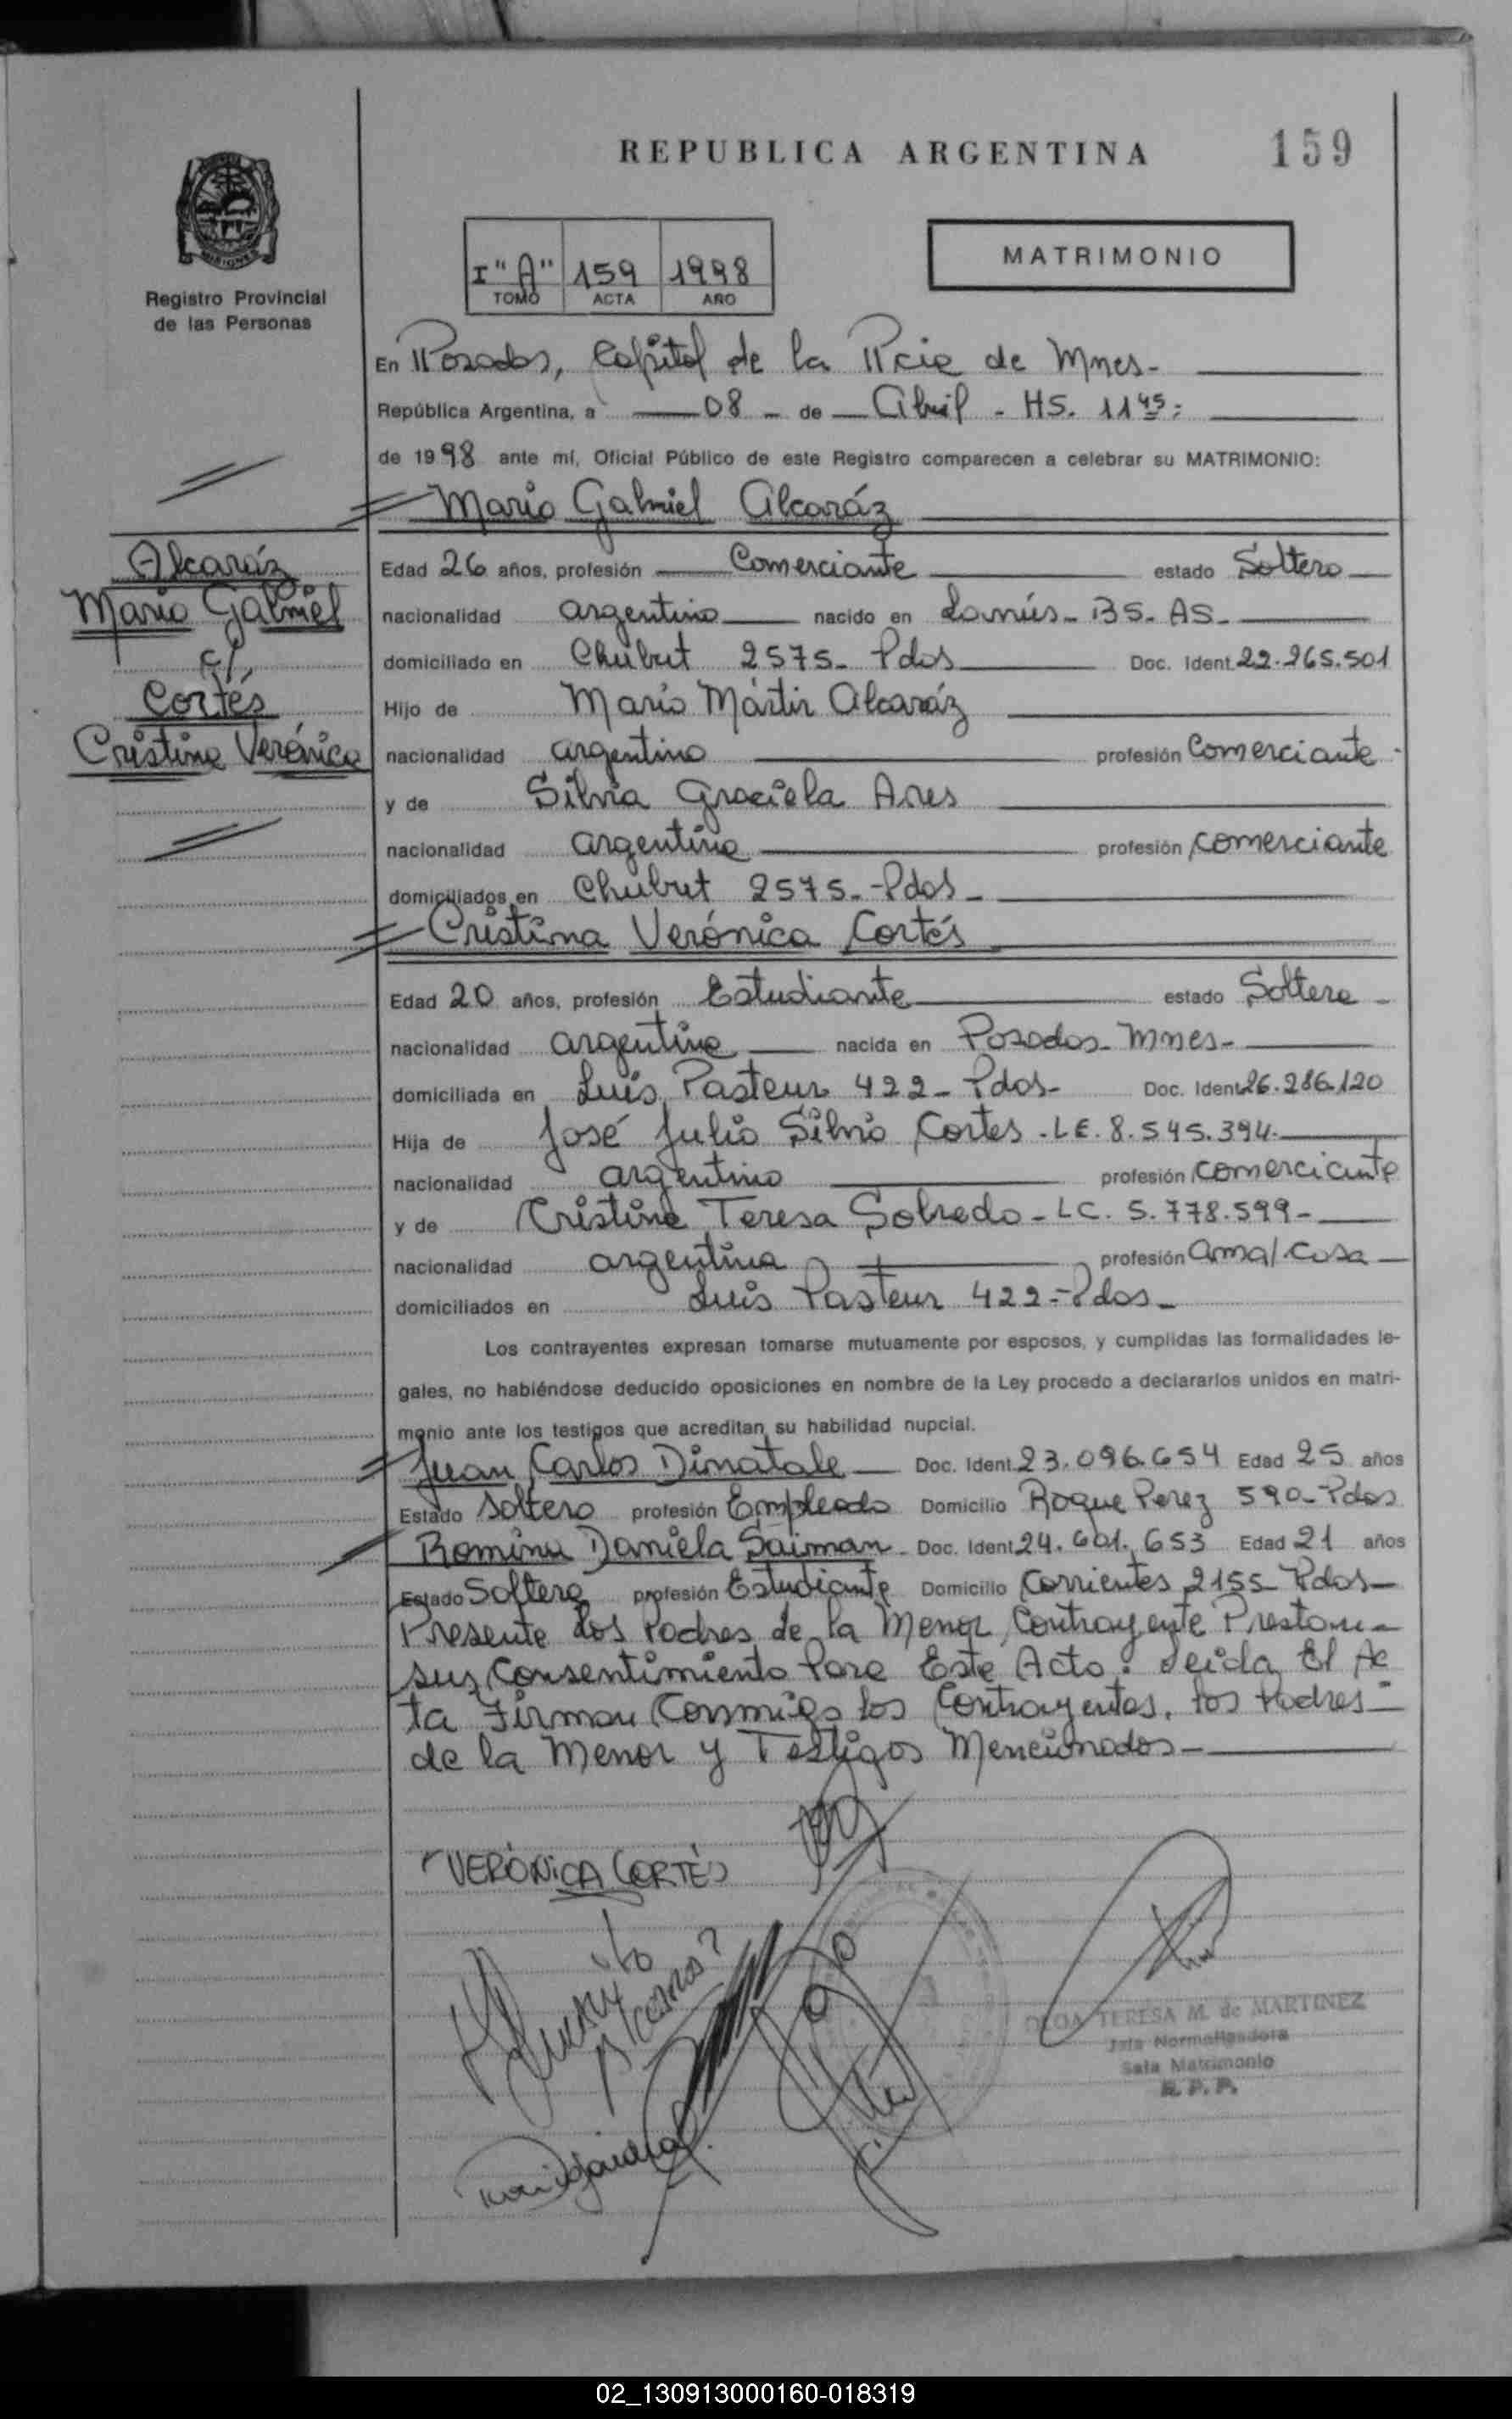 REPUBLICA ARGENTINA
159
MISIONES
Registro Provincial
de las Personas
I "A" 159 1998
TOMO ACTA AÑO
MATRIMONIO
En Posadas, Capital de la Pcia de Mnes-
República Argentina, a 08 - de Abril - HS. 11 45;
de 1998 ante mí, Oficial Público de este Registro comparecen a celebrar su MATRIMONIO:
Mario Gabriel Alcaráz
Alcaráz
Mario Gabriel
c/
Cortés
Cristina Verónica
Edad 26 años, profesión Comerciante estado Soltero
nacionalidad argentino nacido en Lanús - BS. AS.
domiciliado en Chubut 2575- Pdas Doc. Ident. 22.265.501
Hijo de Mario Mártir Alcaráz
nacionalidad argentino profesión Comerciante
y de Silvia Graciela Ares
nacionalidad argentina profesión comerciante
domiciliados en Chubut 2575.- Pdas -
Cristina Verónica Cortés
Edad 20 años, profesión Estudiante estado Soltera
nacionalidad argentina nacida en Posadas- Mnes-
domiciliada en Luis Pasteur 422- Pdas- Doc. Ident 26.286.120
Hija de José Julio Silvio Cortes - LE. 8.545.394.
nacionalidad argentino profesión comerciante
y de Cristina Teresa Sobredo - LC. 5.778.599-
nacionalidad argentina profesión ama/ casa
domiciliados en Luis Pasteur 422.- Pdas-
Los contrayentes expresan tomarse mutuamente por esposos, y cumplidas las formalidades le-
gales, no habiéndose deducido oposiciones en nombre de la Ley procedo a declararlos unidos en matri-
monio ante los testigos que acreditan su habilidad nupcial.
Juan Carlos Dinatale Doc. Ident. 23.096.654 Edad 25 años
Estado Soltero profesión Empleado Domicilio Roque Perez 590- Pdas
Romina Daniela Saiman Doc. Ident 24.601.653 Edad 21 años
Estado Soltera profesión Estudiante Domicilio Corrientes 2155- Pdas-
Presente los Padres de la Menor Contrayente Prestan-
sus Consentimiento Para Este Acto. Leida El Ac
ta Firman Conmigo los Contrayentes, los Padres-
de la Menor y Testigos Mencionados-
VERÓNICA CORTÉS
TERESA M. de MARTINEZ
Jefa Normalizadora
Sala Matrimonio
R. P. P.
02_130913000160-018319